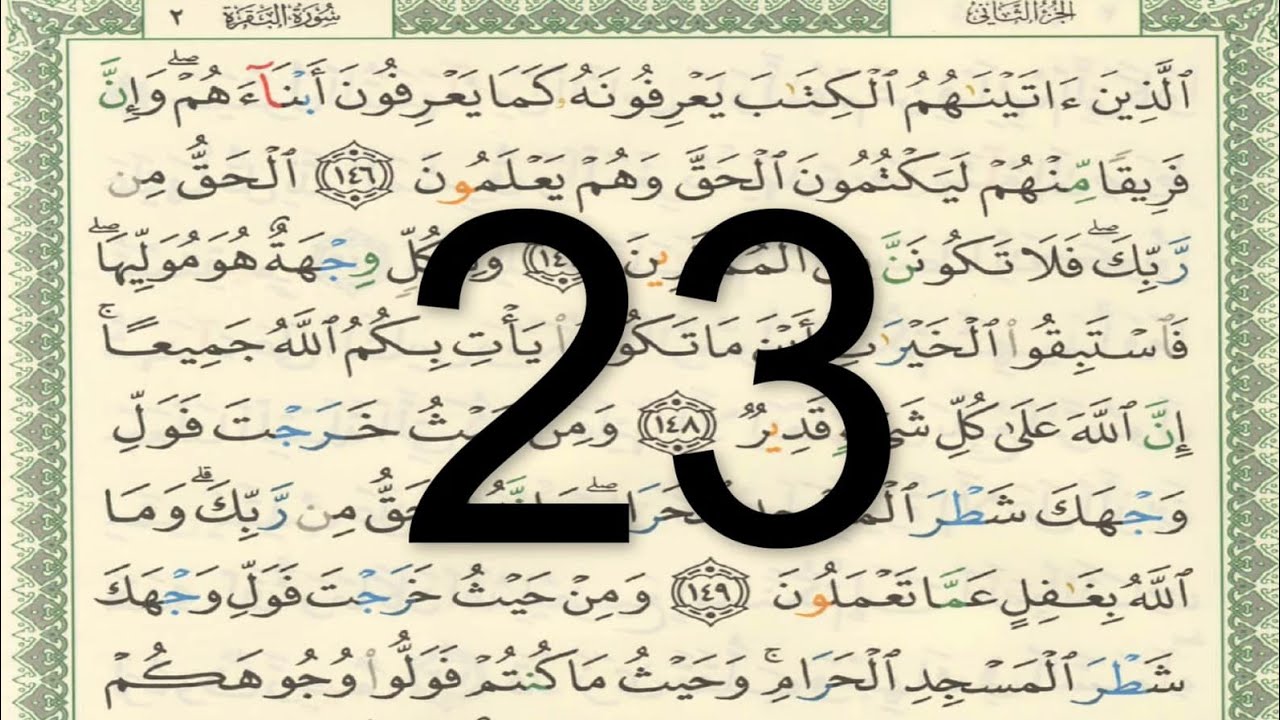 الجزء الثاني
سورة البقرة ٢
ٱلَّذِينَ ءَاتَيْنَٰهُمُ ٱلْكِتَٰبَ يَعْرِفُونَهُۥ كَمَا يَعْرِفُونَ أَبْنَآءَهُمْ ۖ وَإِنَّ
فَرِيقًا مِّنْهُمْ لَيَكْتُمُونَ ٱلْحَقَّ وَهُمْ يَعْلَمُونَ ١٤٦ ٱلْحَقُّ مِن
رَّبِّكَ ۖ فَلَا تَكُونَنَّ ٱلْمُمْتَرِينَ وَلِكُلٍّ وِجْهَةٌ هُوَ مُوَلِّيهَا ۖ
فَٱسْتَبِقُوا۟ ٱلْخَيْرَٰتِ أَيْنَ مَا تَكُونُوا۟ يَأْتِ بِكُمُ ٱللَّهُ جَمِيعًا ۚ
إِنَّ ٱللَّهَ عَلَىٰ كُلِّ شَىْءٍ قَدِيرٌ ١٤٨ وَمِنْ حَيْثُ خَرَجْتَ فَوَلِّ
وَجْهَكَ شَطْرَ ٱلْمَسْجِدِ ٱلْحَرَامِ ۖ وَإِنَّهُۥ لَلْحَقُّ مِن رَّبِّكَ ۗ وَمَا
ٱللَّهُ بِغَٰفِلٍ عَمَّا تَعْمَلُونَ ١٤٩ وَمِنْ حَيْثُ خَرَجْتَ فَوَلِّ وَجْهَكَ
شَطْرَ ٱلْمَسْجِدِ ٱلْحَرَامِ ۚ وَحَيْثُ مَا كُنتُمْ فَوَلُّوا۟ وُجُوهَكُمْ
23